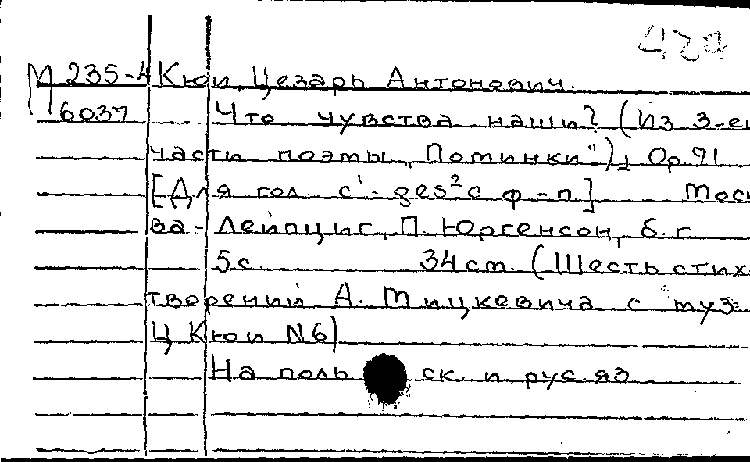 42д
М 235-4 Кюи, Цезарь Антонович.
6037 Что чувства наши? (Из 3-ей
части поэмы „Поминки"), Op.91
[Для гол. c¹-ges² с ф-п.] Моск
ва-Лейпциг, П. Юргенсон, б.г.
5с. 34см. (Шесть стихо
творений А. Мицкевича с муз.
Ц. Кюи №6)
На польск. и рус. яз.